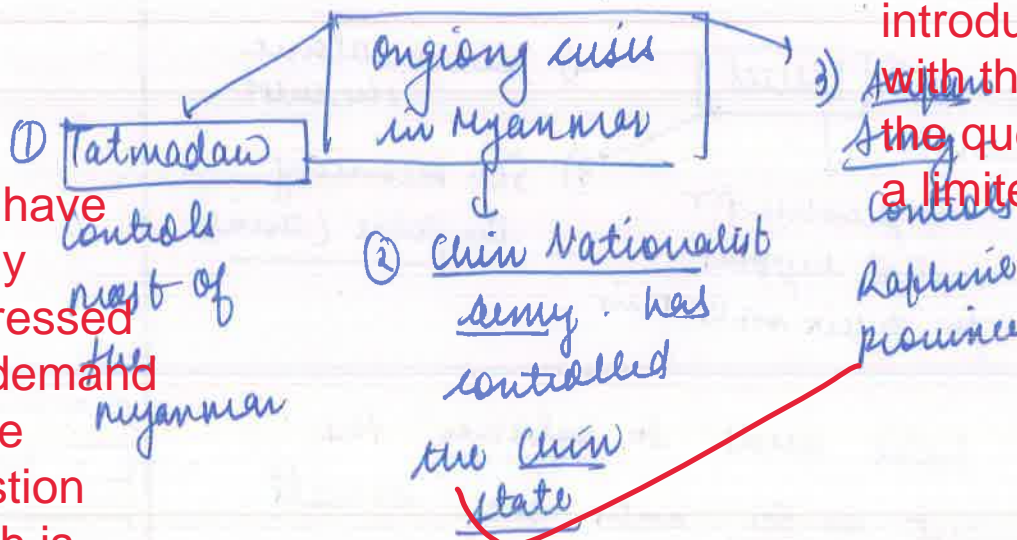 ongiong crisis
in Myanmar
① Tatmadaw
controls
most of
the
myanmar
② Chin Nationalist
army . has
controlled
the Chin
state
3)
Army
controls
province
have
y
ressed
demand
e
stion
h is
introdu
with th
the que
a limite